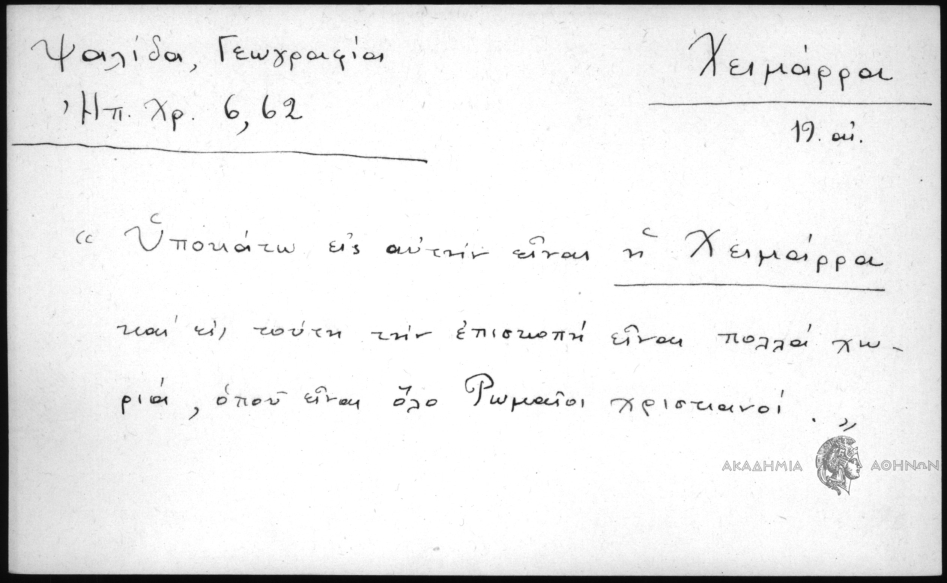 Ψαλίδα, Γεωγραφία
Χειμάρρα
Ἠπ. Χρ. 6, 62
19. αἰ.
“ Ὑποκάτω εἰς αὐτὴν εἶναι ἡ Χειμάρρα
καὶ εἰς τούτη τὴν ἐπισκοπή εἶναι πολλὰ χω-
ριά, ὁποῦ εἶναι ὅλο Ρωμαῖοι χριστιανοί. „
ΑΚΑΔΗΜΙΑ ΑΘΗΝΩΝ